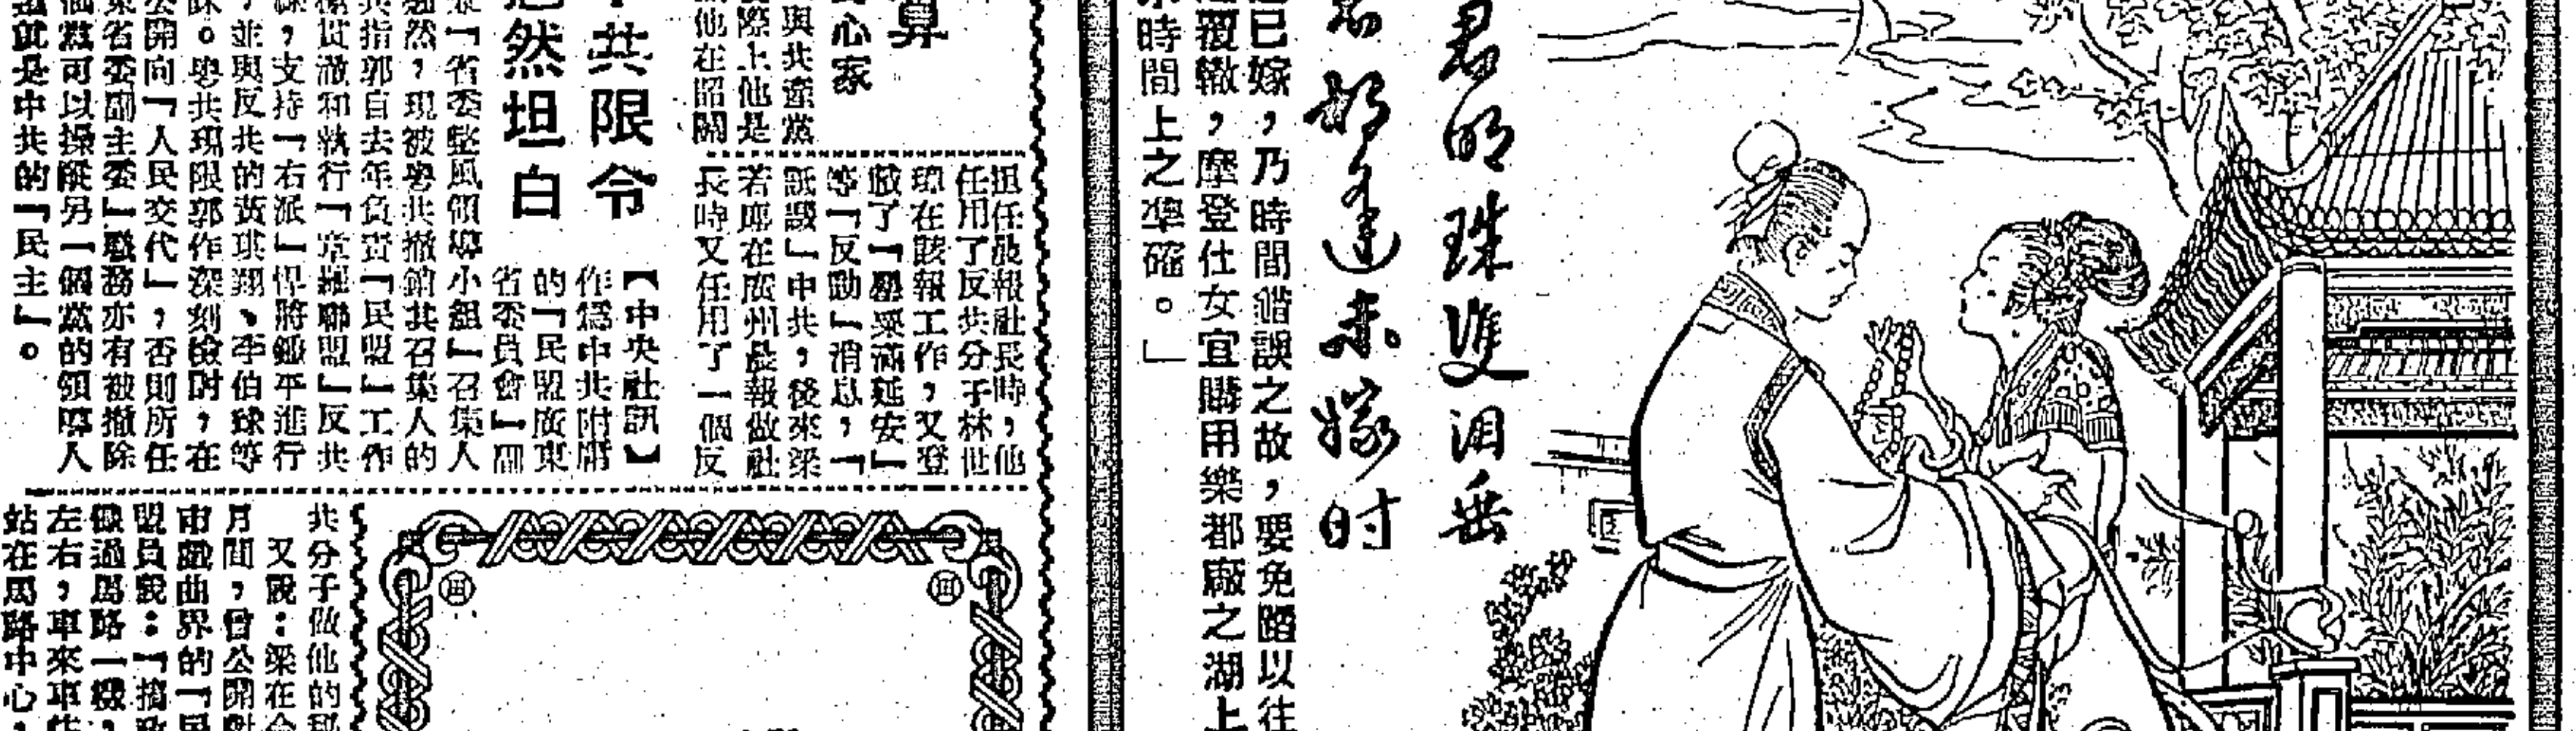 君明珠雙泪垂
都逢未嫁时
已嫁，乃時間錯誤之故，要免蹈以往
覆轍，摩登仕女宜購用樂都廠之湖上
時間上之準確。」
算
心家
與共產黨
際上他是
他在韶關
任晨報社長時，他
任用了反共分子林世
在該報工作，又登
了「罌粟滿延安」
等「反動」消息，「
詆譭」中共，後來梁
若塵在廣州晨報做社
長時又任用了一個反
共限令
然坦白
【中央社訊】
作為中共附庸
的「民盟廣東
省委員會」副
「省委整風領導小組」召集人
然，現被粵共撤銷其召集人的
指郭自去年負責「民盟」工作
貫澈和執行「章羅聯盟」反共
，支持「右派」悍將鍾平進行
，並與反共的黃琪翔、李伯球等
。粵共現限郭作深刻檢討，在
開向「人民交代」，否則所任
省委副主委」職務亦有被撤除
黨可以操縱另一個黨的領導人
就是中共的「民主」。
共分子做他的
又說：梁在今
月間，曾公開對
市戲曲界的「民
盟員說：「搞政
像過馬路一樣，
左右，車來車往
站在馬路中心，